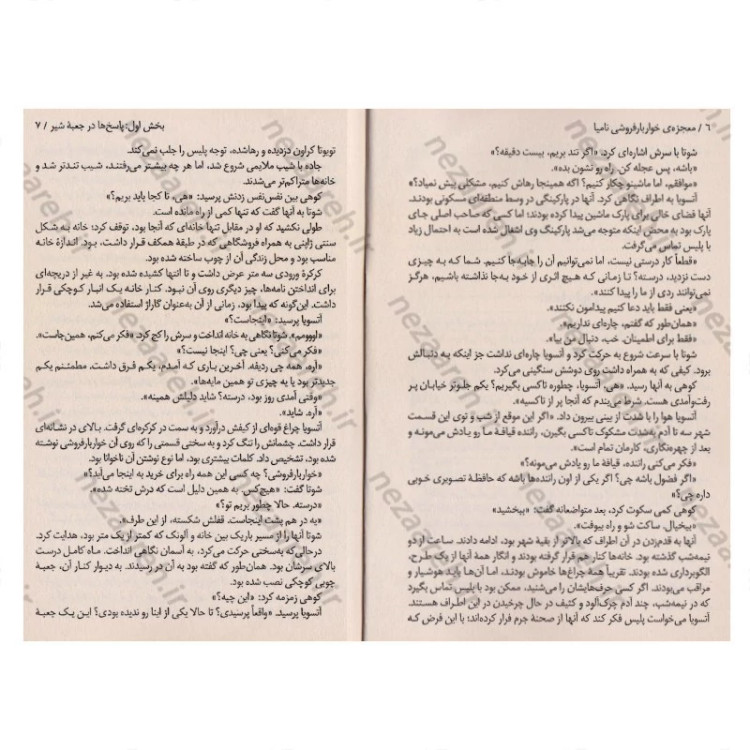 ۶ / معجزه‌ی خواربارفروشی نامیا
شوتا با سرش اشاره‌ای کرد. «اگر تند بریم، بیست دقیقه؟»
«باشه، پس عجله کن. راه رو نشون بده».
«موافقم، اما ماشینو چکار کنیم؟ اگه همینجا رهاش کنیم، مشکلی پیش نمیاد؟»
آتسویا به اطراف نگاهی کرد. آنها در پارکینگی در وسط منطقه‌ای مسکونی بودند.
آنها فضای خالی برای پارک ماشین پیدا کرده بودند؛ اما کسی که صاحب اصلی جای
پارک بود به محض اینکه متوجه می‌شد پارکینگ وی اشغال شده است به احتمال زیاد
با پلیس تماس می‌گرفت.
«قطعاً کار درستی نیست، اما نمی‌توانیم آن را جابه‌جا کنیم. شما که به چیزی
دست نزدید، درسته؟ تا زمانی که هیچ اثری از خود به‌جا نذاشته باشیم، هرگز
نمی‌توانند ردی از ما را پیدا کنند».
«یعنی فقط باید دعا کنیم پیدامون نکنند».
«همان‌طور که گفتم، چاره‌ای نداریم».
«فقط برای اطمینان. خب، دنبال من بیا».
شوتا با سرعت شروع به حرکت کرد و آتسویا چاره‌ای نداشت جز اینکه به دنبالش
برود. کیفی که به همراه داشت روی دوشش سنگینی می‌کرد.
کوهی به آنها رسید. «هی، آتسویا، چطوره تاکسی بگیریم؟ یکم جلوتر خیابان پر
رفت‌وآمدی هست. شرط می‌بندم که آنجا پر از تاکسیه».
آتسویا هوا را با شدت از بینی بیرون داد. «اگر این موقع از شب و توی این قسمت
شهر سه تا آدم به‌شدت مشکوک تاکسی بگیرن، راننده قیافهٔ ما رو یادش می‌مونه و
بعد از چهره‌نگاری، کارمان تمام است».
«فکر می‌کنی راننده، قیافهٔ ما رو یادش می‌مونه؟»
«اگر فضول باشه چی؟ اگر یکی از اون راننده‌ها باشه که حافظهٔ تصویری خوبی
داره چی؟»
کوهی کمی سکوت کرد، بعد متواضعانه گفت: «ببخشید»
«بیخیال. ساکت شو و راه بیوفت».
آنها به قدم‌زدن در آن اطراف که بالاتر از بقیهٔ شهر بود، ادامه دادند. ساعت از دو
نیمه‌شب گذشته بود. خانه‌ها کنار هم قرار گرفته بودند و انگار همهٔ آنها از یک طرح،
الگوبرداری شده بودند. تقریباً همهٔ چراغ‌ها خاموش بودند، اما آن‌ها باید هوشیار و
مراقب می‌بودند. اگر کسی حرف‌هایشان را می‌شنید، ممکن بود با پلیس تماس بگیرد
که در نیمه‌شب، چند آدم چرک‌آلود و کثیف در حال چرخیدن در این اطراف هستند.
آتسویا می‌خواست پلیس فکر کند که آنها از صحنهٔ جرم فرار کرده‌اند؛ با این فرض که
بخش اول: پاسخ‌ها در جعبهٔ شیر / ۷
تویوتا کراون دزدیده و رهاشده، توجه پلیس را جلب نمی‌کند.
جاده با شیب ملایمی شروع شد، اما هر چه بیشتر می‌رفتند، شیب تندتر شد و
خانه‌ها متراکم‌تر می‌شدند.
کوهی بین نفس‌نفس زدنش پرسید: «هی، تا کجا باید بریم؟»
شوتا به آنها گفت که تنها کمی از راه مانده است.
طولی نکشید که او در مقابل تنها خانه‌ای که آنجا بود، توقف کرد؛ خانه به شکل
سنتی ژاپنی به همراه فروشگاهی که در طبقهٔ همکف قرار داشت، بود. اندازهٔ خانه
مناسب بود و محل زندگی آن از چوب ساخته شده بود.
کرکرهٔ ورودی سه متر عرض داشت و تا انتها کشیده شده بود. به غیر از دریچه‌ای
برای انداختن نامه‌ها، چیز دیگری روی آن نبود. کنار خانه یک انبار کوچکی قرار
داشت. این‌گونه که پیدا بود، زمانی از آن به‌عنوان گاراژ استفاده می‌شد.
آتسویا پرسید: «اینجاست؟»
«اوووممم». شوتا نگاهی به خانه انداخت و سرش را کج کرد. «فکر می‌کنم، همین‌جاست».
«فکر می‌کنی؟ یعنی چی؟ اینجا نیست؟»
«آره، همه چی ردیفه. آخرین باری که آمدم، یکم فرق داشت. مطمئنم یکم
جدیدتر بود یا یه چیزی تو همین مایه‌ها».
«وقتی آمدی روز بود، درسته؟ شاید دلیلش همینه».
«آره. شاید».
آتسویا چراغ قوه‌ای از کیفش درآورد و به سمت در کرکره‌ای گرفت. بالای در نشانه‌ای
قرار داشت. چشمانش را تنگ کرد و به سختی قسمتی را که روی آن خواربارفروشی نوشته
شده بود، تشخیص داد. کلمات بیشتری بود، اما نوع نوشتن آن ناخوانا بود.
«خواربارفروشی؟ چه کسی این همه راه برای خرید به اینجا می‌آید؟»
شوتا گفت: «هیچ‌کس. به همین دلیل است که درش تخته شده».
«درسته. حالا چطور بریم تو؟»
«یه در هم پشت اینجاست. قفلش شکسته، از این طرف».
شوتا آنها را از مسیر باریک بین خانه و آلونک که کمتر از یک متر بود، هدایت کرد.
درحالی‌که به‌سختی حرکت می‌کرد، به آسمان نگاهی انداخت. ماه کامل درست
بالای سرشان بود. همان‌طور که گفته بود به آن در رسیدند. به دیوار کنار آن، جعبهٔ
چوبی کوچکی نصب شده بود.
کوهی زمزمه کرد: «این چیه؟»
آتسویا پرسید. «واقعاً پرسیدی؟ تا حالا یکی از اینا رو ندیده بودی؟ این یک جعبهٔ
nezaareh.ir